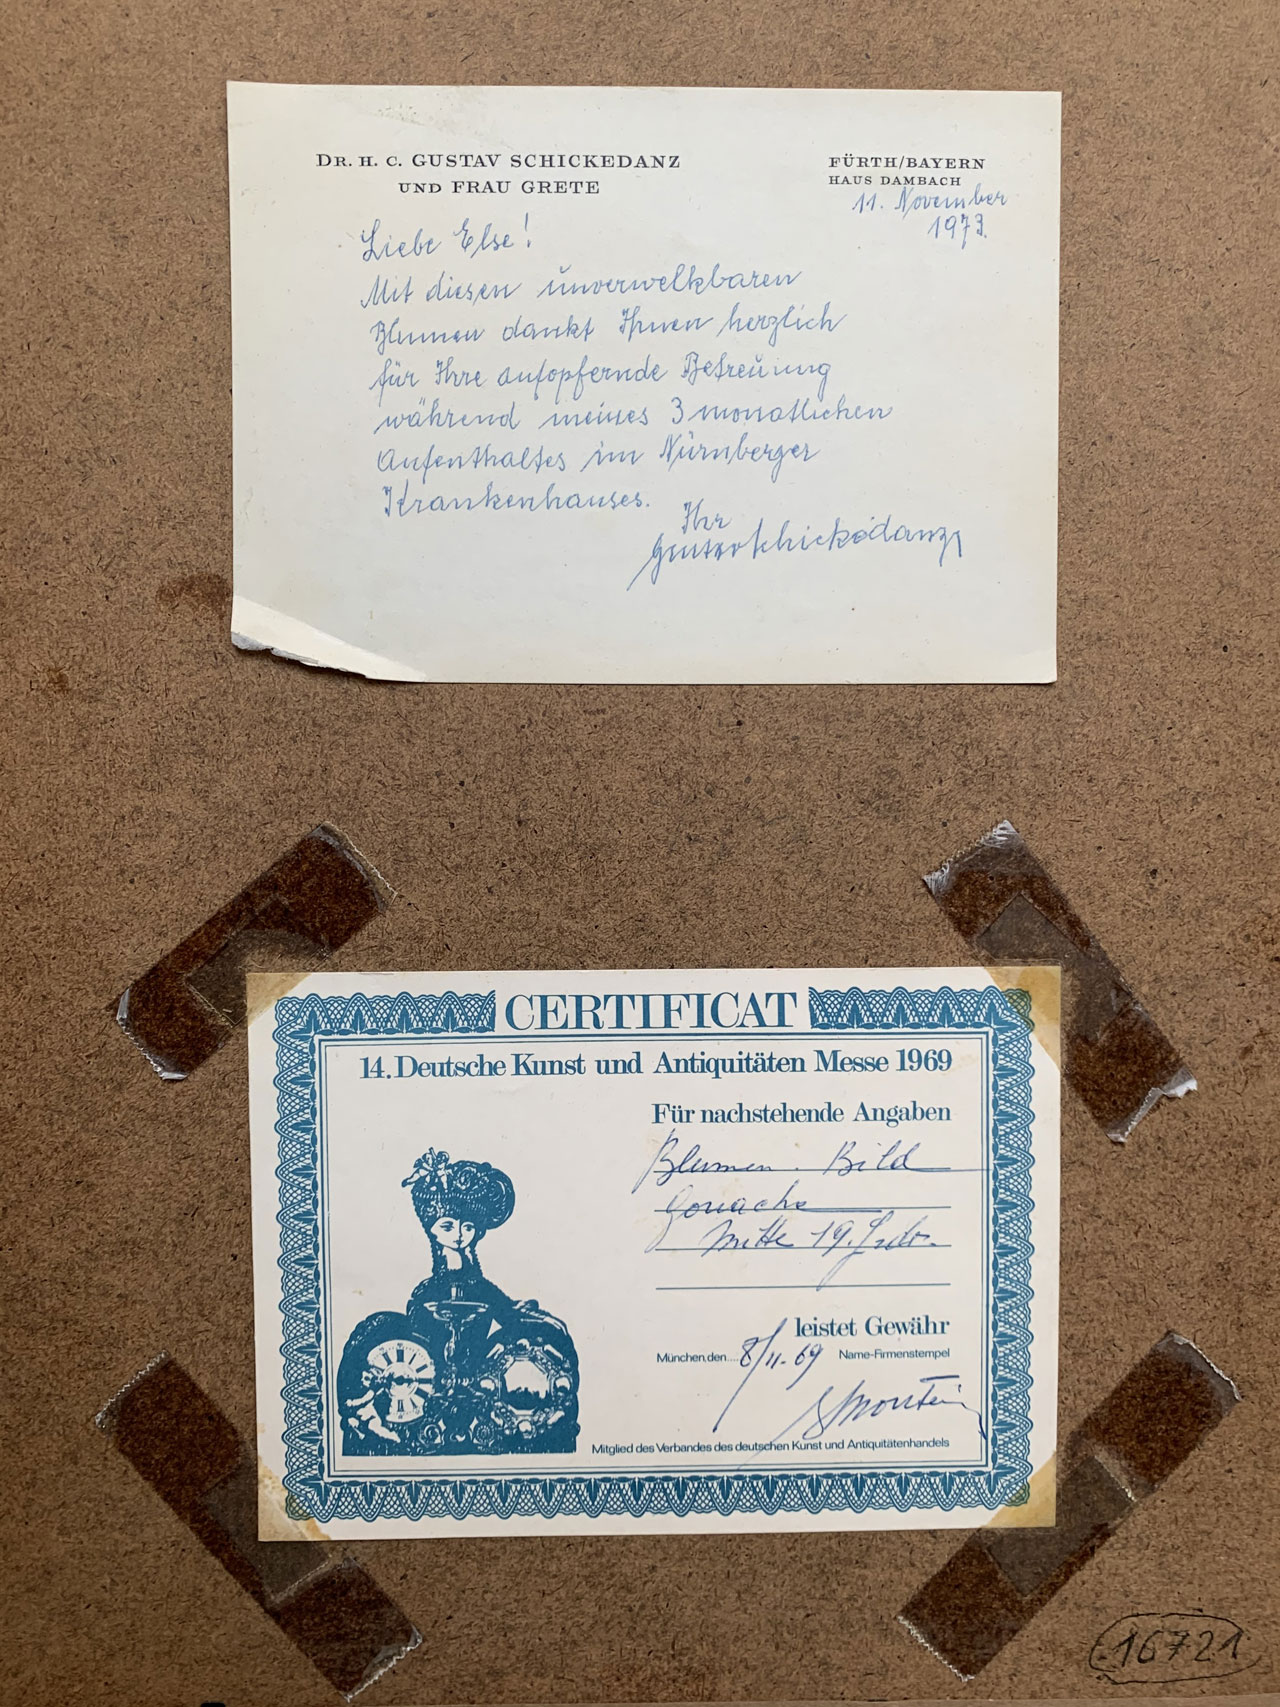 DR. H. C. GUSTAV SCHICKEDANZ
UND FRAU GRETE
FÜRTH/BAYERN
HAUS DAMBACH
11. November
1973.
Liebe Else!
Mit diesen unverwelkbaren
Blumen dankt Ihnen herzlich
für Ihre aufopfernde Betreuung
während meines 3 monatlichen
Aufenthaltes im Nürnberger
Krankenhauses.
Ihr
Gustav Schickedanz
CERTIFICAT
14. Deutsche Kunst und Antiquitäten Messe 1969
Für nachstehende Angaben
Blumen-Bild
Gouache
Mitte 19. Jhdr.
leistet Gewähr
München, den.... 8/11.69 Name-Firmenstempel
Mitglied des Verbandes des deutschen Kunst und Antiquitätenhandels
16721